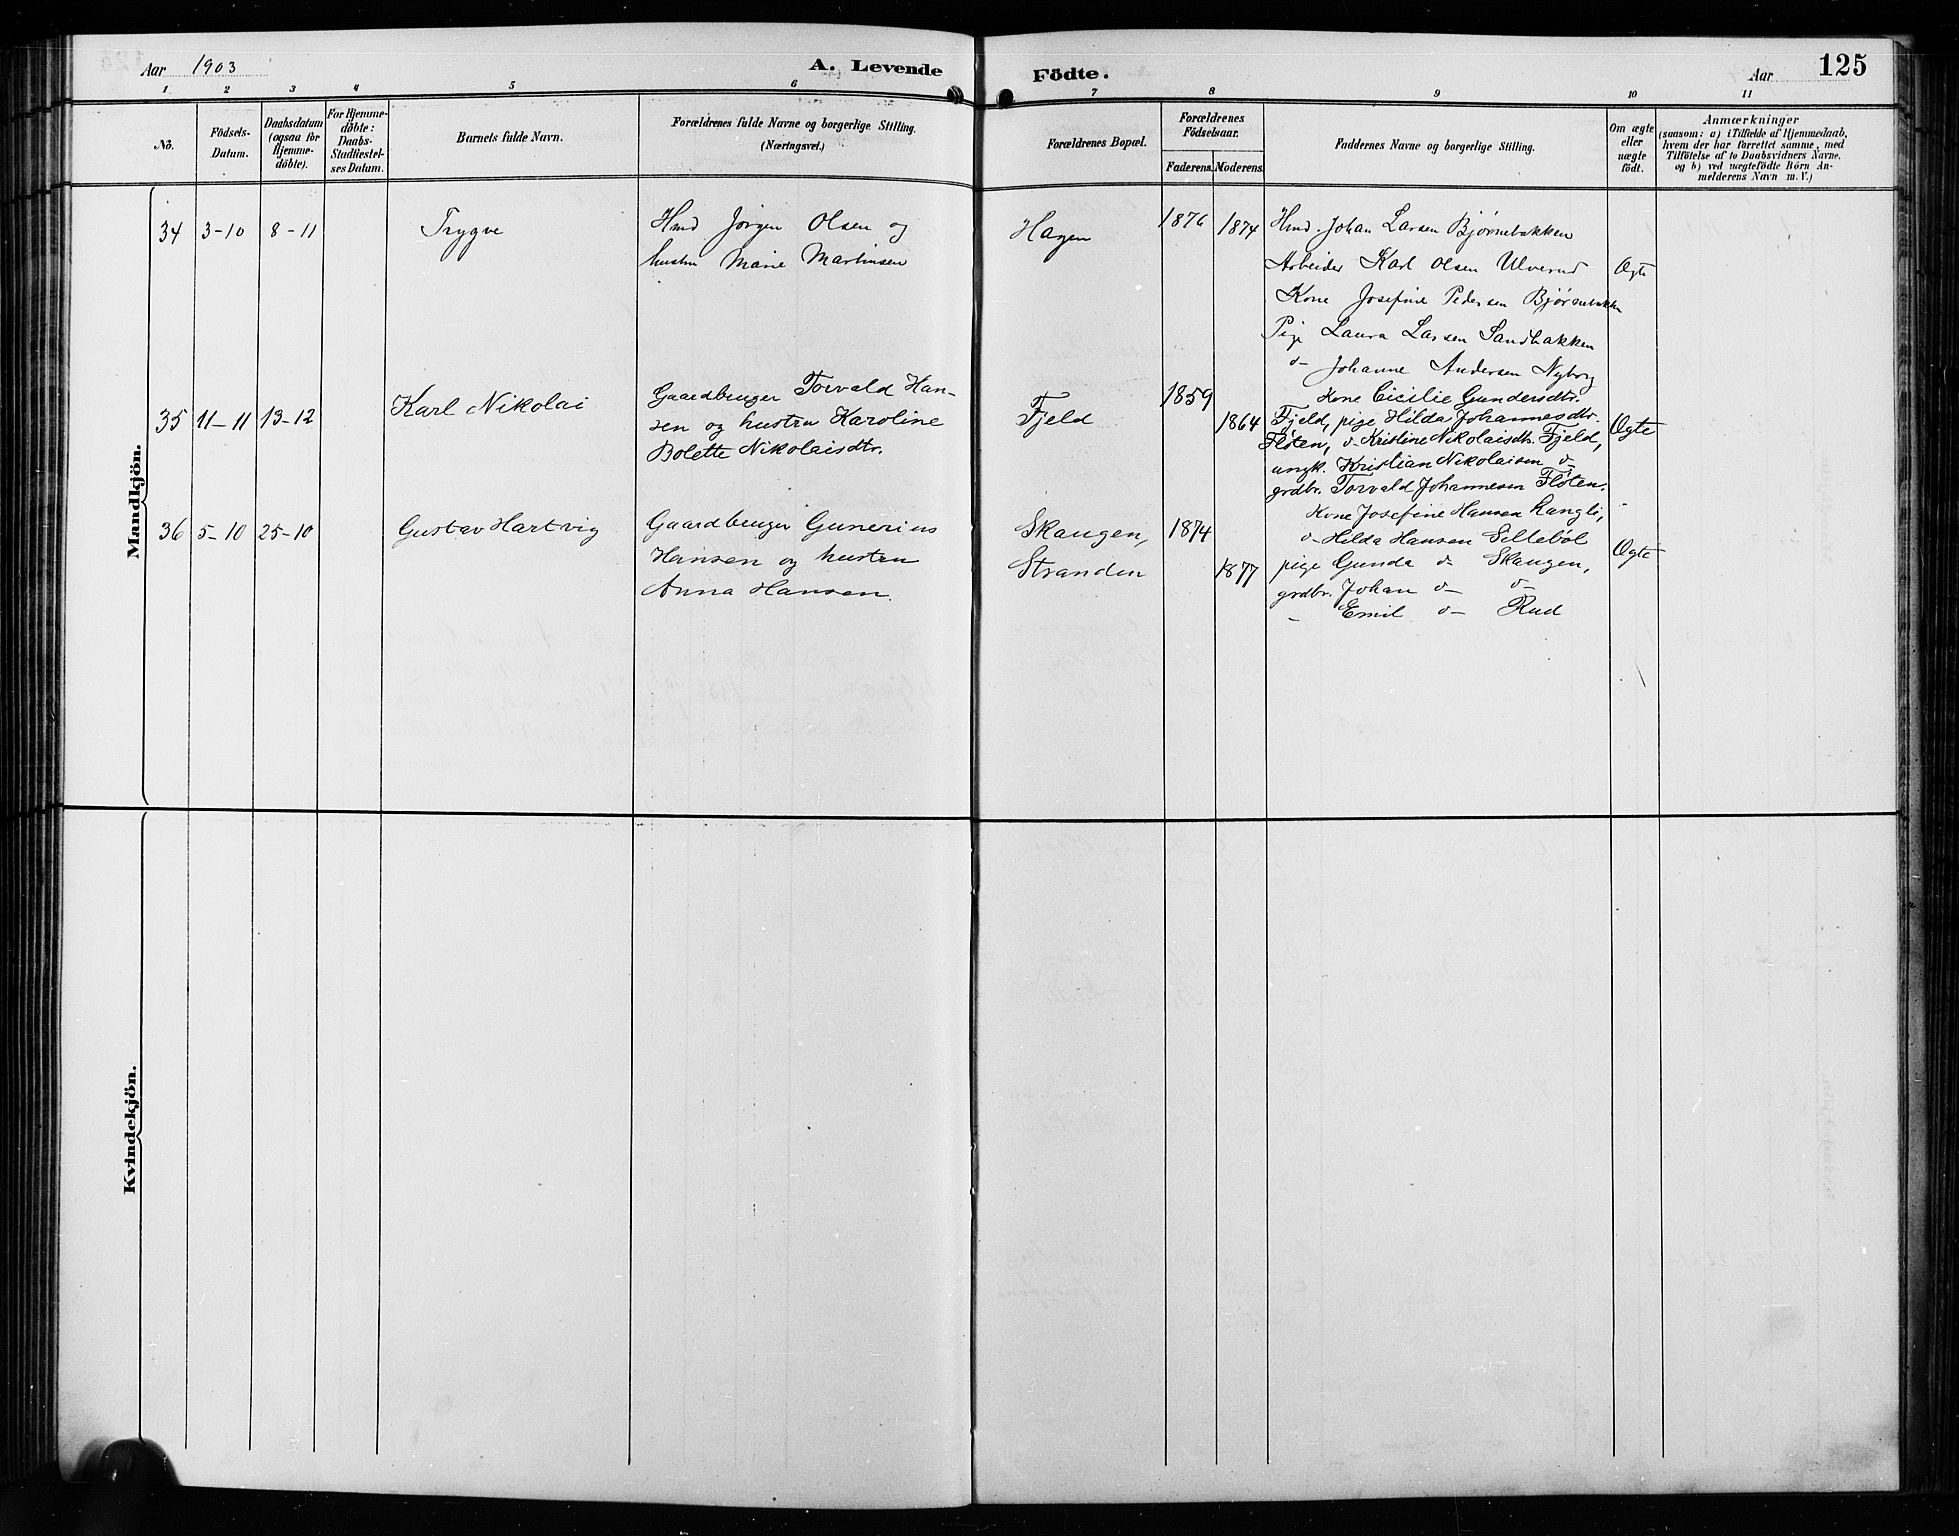 Aar 1903
A. Levende Födte.
Aar
125
1 2 3 4 5 6 7 8 9 10 11
No.
Födsels-Datum.
Daabsdatum (ogsaa for Hjemme-döbte).
For Hjemme-döbte: Daabs-Stadfæstel-ses Datum.
Barnets fulde Navn.
Forældrenes fulde Navne og borgerlige Stilling.
(Næringsvei.)
Forældrenes Bopæl.
Forældrenes Födselsaar.
Faderens. Moderens.
Faddernes Navne og borgerlige Stilling.
Om ægte eller uægte födt.
Anmærkninger
(saasom: a) i Tilfælde af Hjemmedaab,
hvem der har forrettet samme, med
Tilföielse af to Daabsvidners Navne,
og b) ved uægtefödte Börn An-
melderens Navn m. V.)
Mandkjön.
34 3-10 8-11 Trygve
Hmd Jørgen Olsen og
hustru Marie Martinsen
Hagen 1876 1874
Hmd. Johan Larsen Bjørnebakken
Arbeider Karl Olsen Ulverud
Kone Josefine Pedersen Bjørnebakken
Pige Laura Larsen Sandbakken
d- Johanne Andersen Nyborg
Ægte
35 11-11 13-12 Karl Nikolai
Gaardbruger Torvald Han-
sen og hustru Karoline
Bolette Nikolaisdtr.
Fjeld 1859 1864
Kone Cicilie Gundersdtr.
Fjeld, pige Hilda Johannesdtr.
Flöten, d- Kristine Nikolaisdtr. Fjeld,
ungk. Kristian Nikolaisen d-
grdbr. Torvald Johannesen Flöten.
Ægte
36 5-10 25-10 Gustav Hartvig
Gaardbruger Gunerius
Hansen og hustru
Anna Hansen.
Skaugen,
Stranden
1874 1877
Kone Josefine Hansen Langli,
d- Hilda Hansen Silleböl
pige Gunda d- Skaugen,
grdbr. Johan d- d-
- Emil d- Rud
Ægte
Kvindekjön.